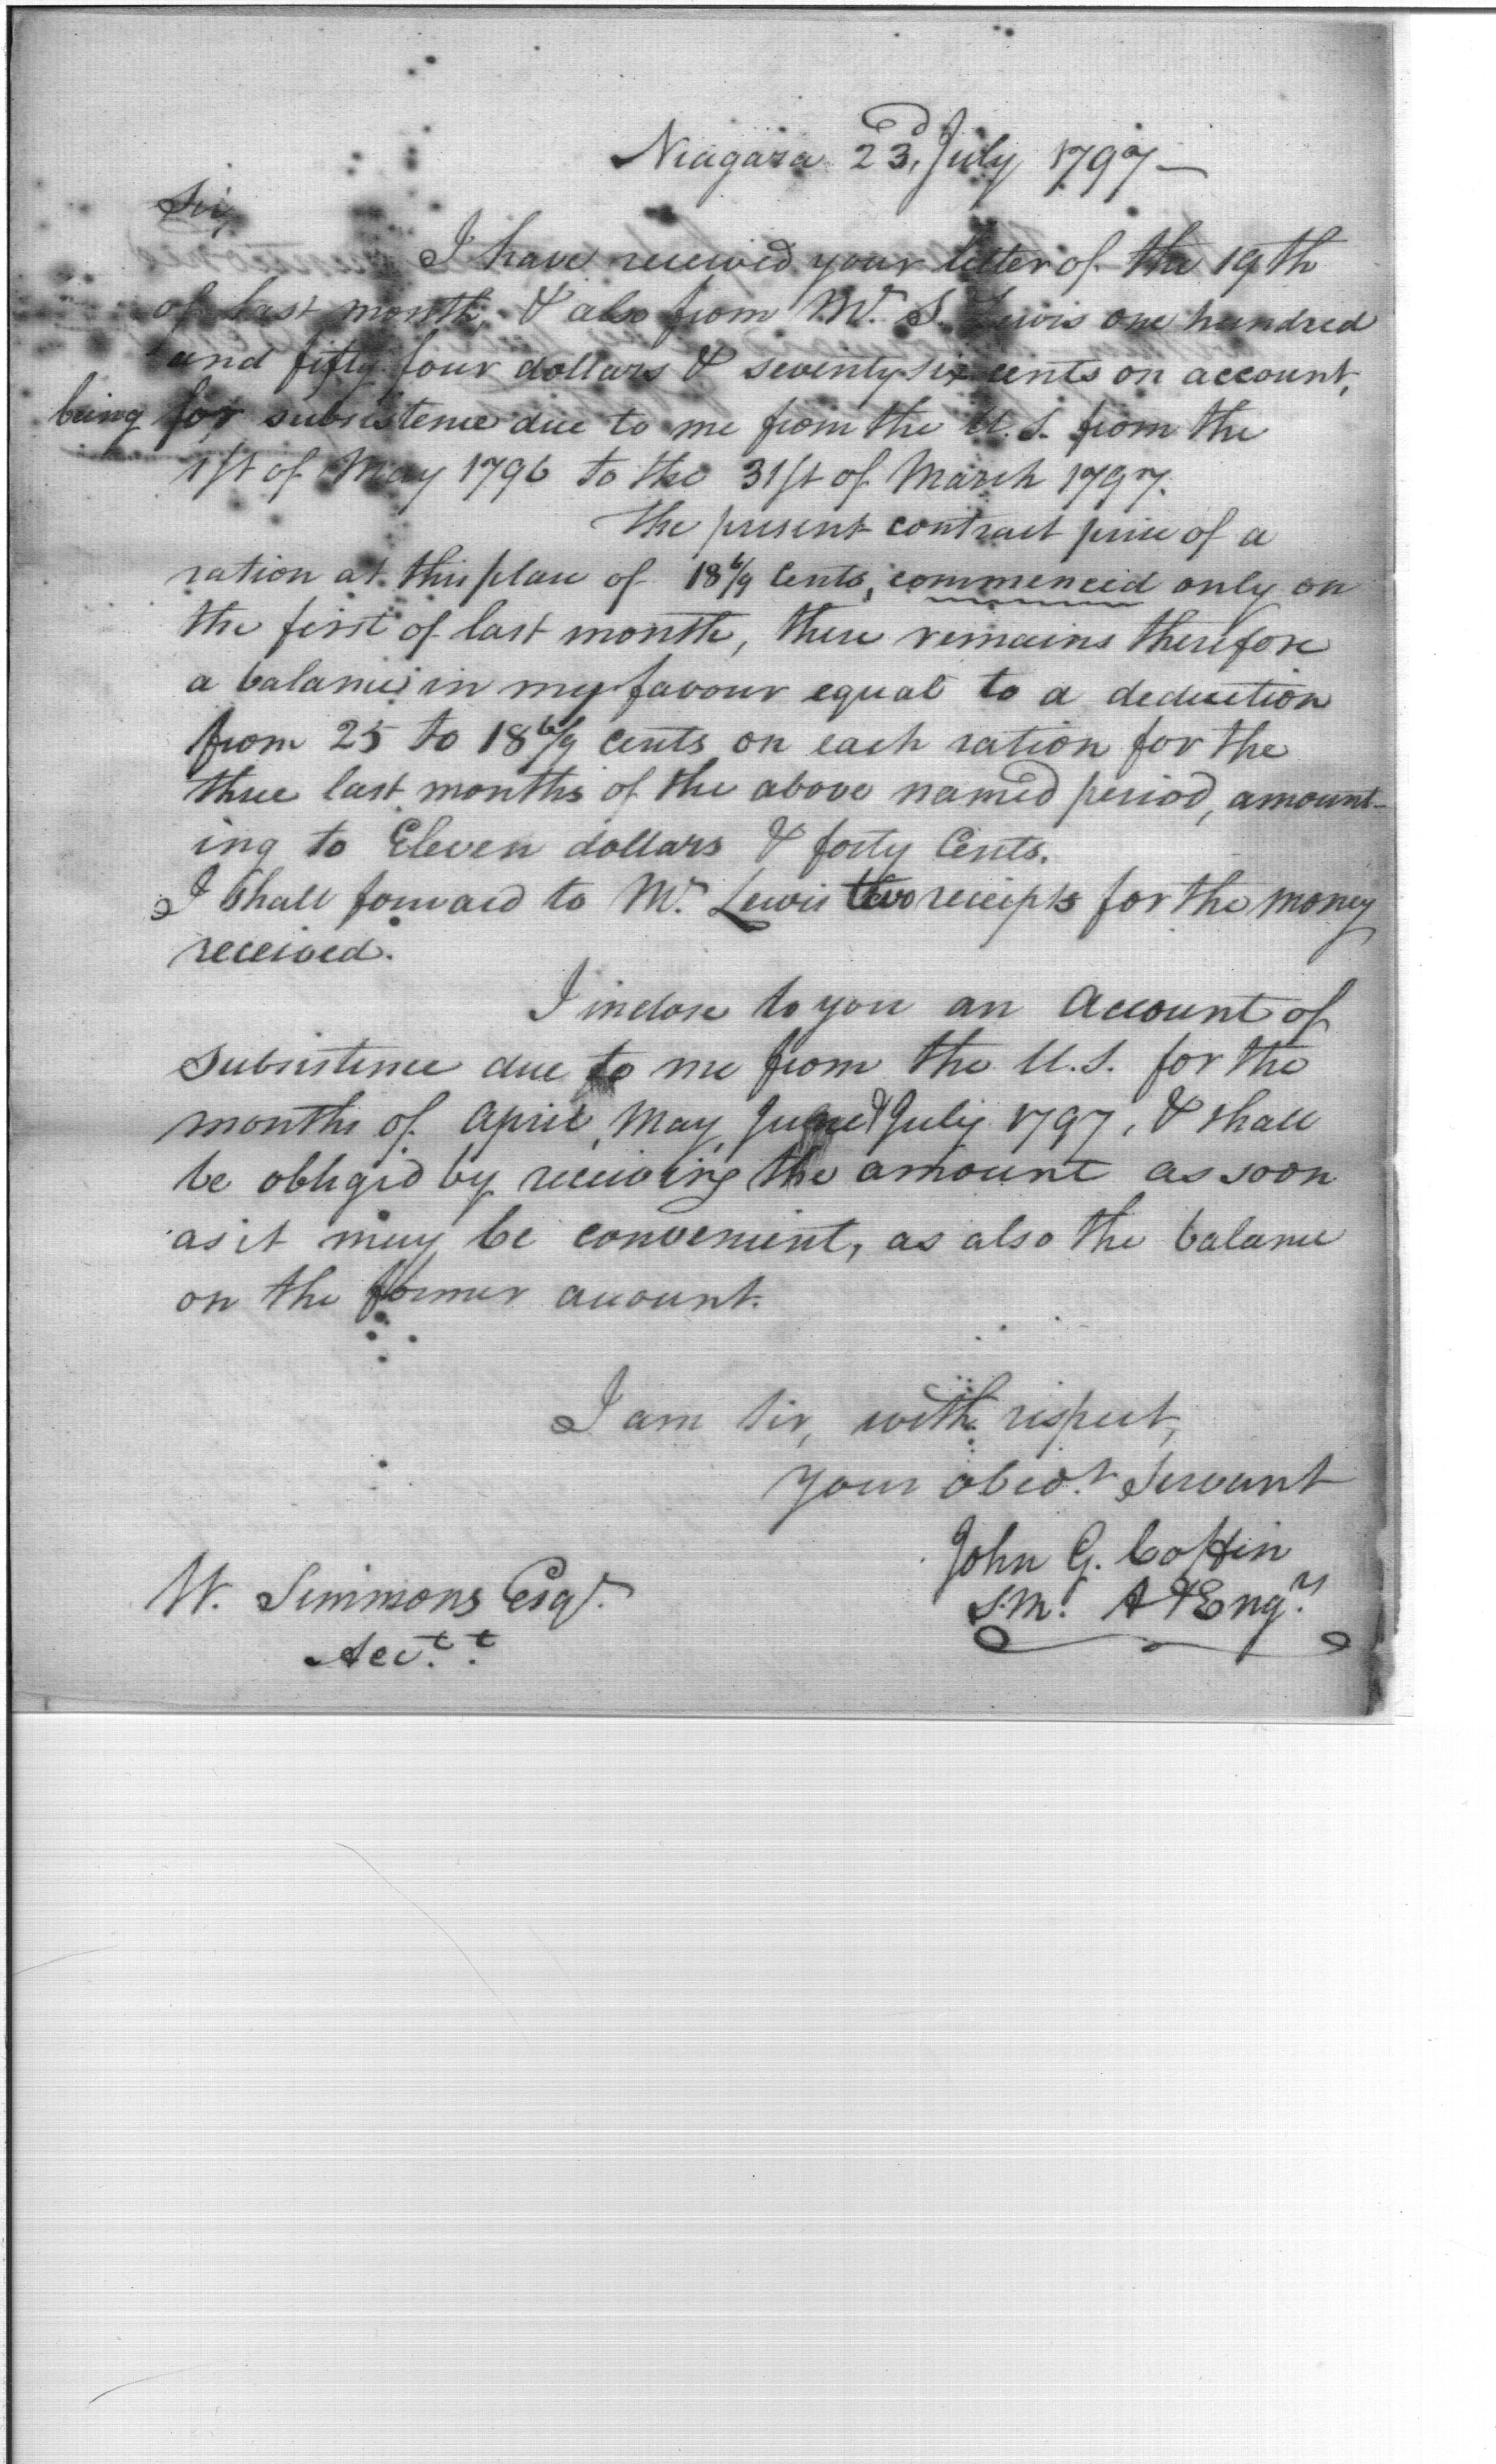 Niagara 23d July 1797 —
Sir,
I have received your letter of the 19th
of last month, & also from Mr. S. Lewis one hundred
and fifty four dollars & seventy six cents on account,
being for subsistence due to me from the U.S. from the
1st of May 1796 to the 31st of March 1797.
The present contract price of a
ration at this place of 18 6/9 Cents, commenced only on
the first of last month, there remains therefore
a balance in my favour equal to a deduction
from 25 to 18 6/9 cents on each ration for the
three last months of the above named period, amount-
ing to Eleven dollars & forty Cents.
I shall forward to Mr. Lewis two receipts for the money
received.
I inclose to you an Account of
Subsistence due to me from the U.S. for the
months of April, May, June & July 1797, & shall
be obliged by receiving the amount as soon
as it may be convenient, as also the balance
on the former account.
I am Sir, with respect,
Your obedt. Servant
John G. Coffin
S.M. A & Engr.
W. Simmons Esqr.
Acctt.